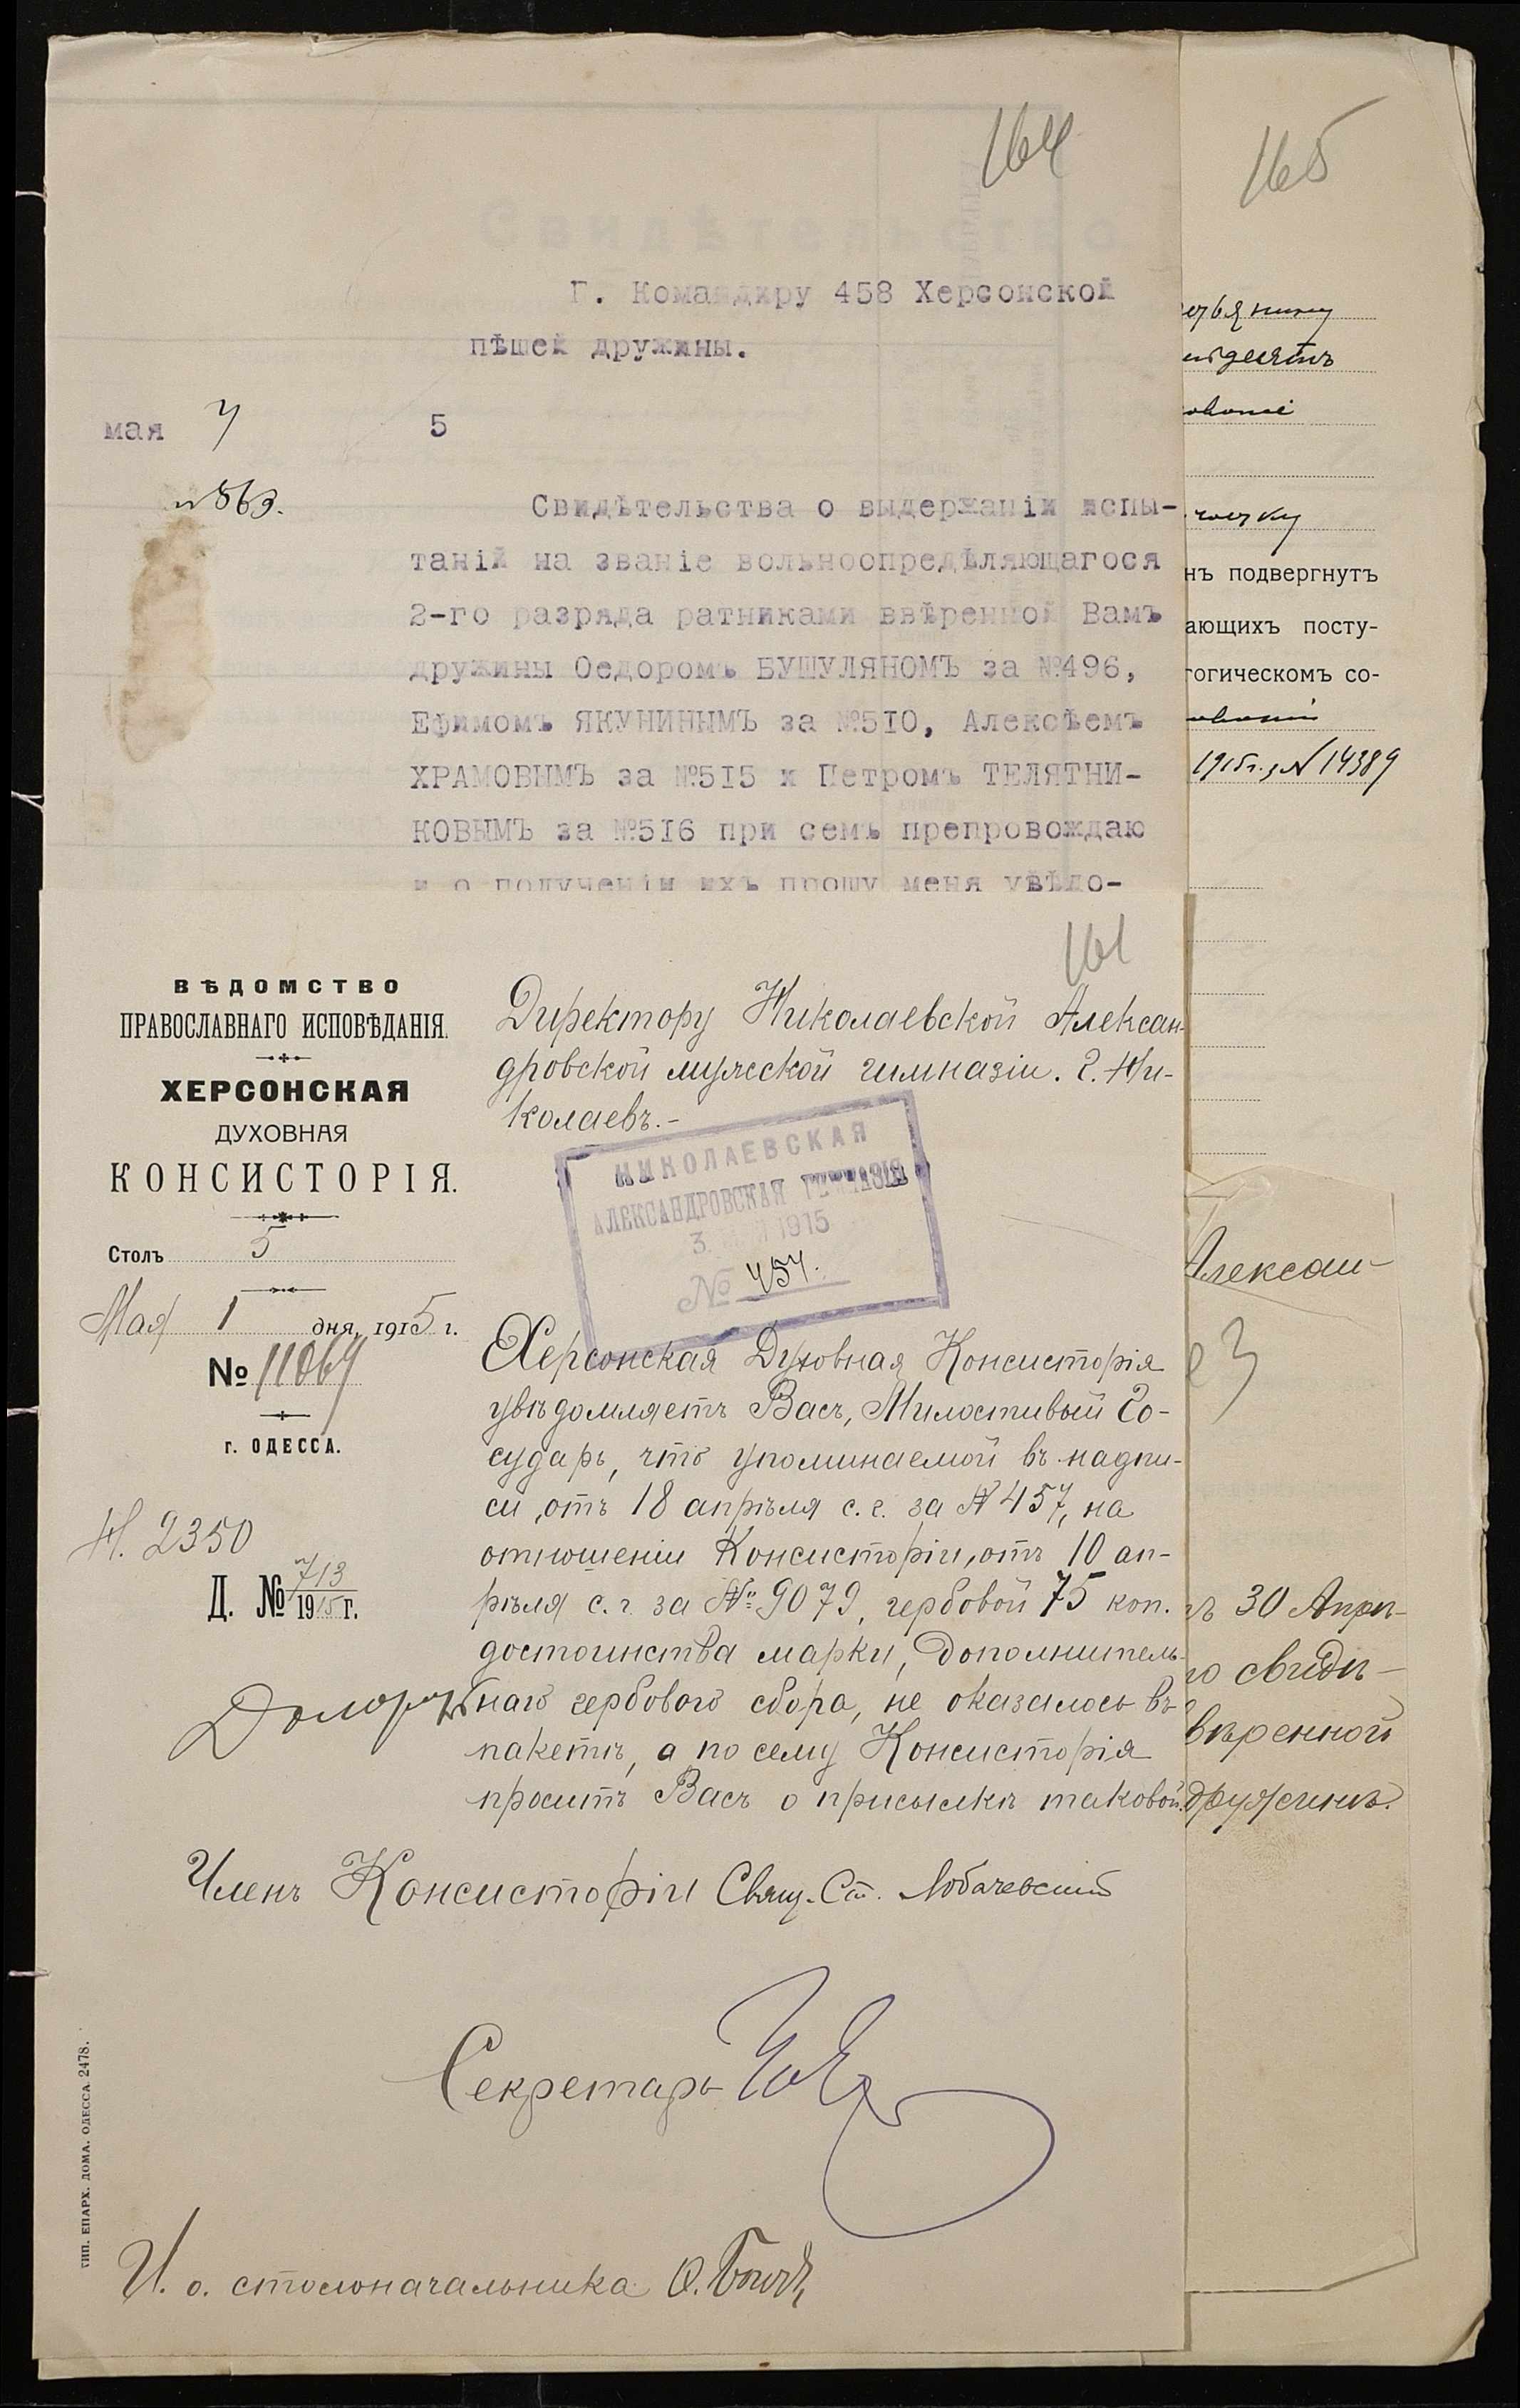 164
Г. Командиру 458 Херсонской
пѣшей дружины.
мая 7 5
№ 563.
Свидѣтельства о выдержаніи испы-
таній на званіе вольноопредѣляющагося
2-го разряда ратниками ввѣренной Вамъ
дружины Ѳедоромъ БУШУЛЯНОМЪ за №496,
Ефимомъ ЯКУНИНЫМЪ за №510, Алексѣемъ
ХРАМОВЫМЪ за №515 и Петромъ ТЕЛЯТНИ-
КОВЫМЪ за №516 при семъ препровождаю
и о полученіи ихъ прошу меня увѣдо-
161
ВѢДОМСТВО
ПРАВОСЛАВНАГО ИСПОВѢДАНІЯ.
ХЕРСОНСКАЯ
ДУХОВНАЯ
КОНСИСТОРІЯ.
Столъ 5
Мая 1 дня, 1915 г.
№ 11069
г. ОДЕССА.
Н. 2350
Д. № 713
1915 г.
Директору Николаевской Алексан-
дровской мужской гимназіи. г. Ни-
колаевъ.-
НИКОЛАЕВСКАЯ
АЛЕКСАНДРОВСКАЯ ГИМНАЗІЯ
3 МАЯ 1915
№ 757.
Херсонская Духовная Консисторія
увѣдомляетъ Васъ, Милостивый Го-
сударь, что упоминаемой въ надпи-
си, отъ 18 апрѣля с. г. за № 457, на
отношеніи Консисторіи, отъ 10 ап-
рѣля с. г. за № 9079, гербовой 75 коп.
достоинства марки, дополнитель-
наго гербового сбора, не оказалось въ
пакетѣ, а по сему Консисторія
проситъ Васъ о присылкѣ таковой.
Членъ Консисторіи Свящ. Ст. Лобачевскій
Секретарь
И. о. столоначальника
ТИП. ЕПАРХ. ДОМА. ОДЕССА. 2478.
165
нъ подвергнутъ
ающихъ посту-
гогическомъ со-
1915 г., № 14389
Алексан-
ъ 30 Апрѣ-
о свидѣ-
ввѣренной
дружинѣ.